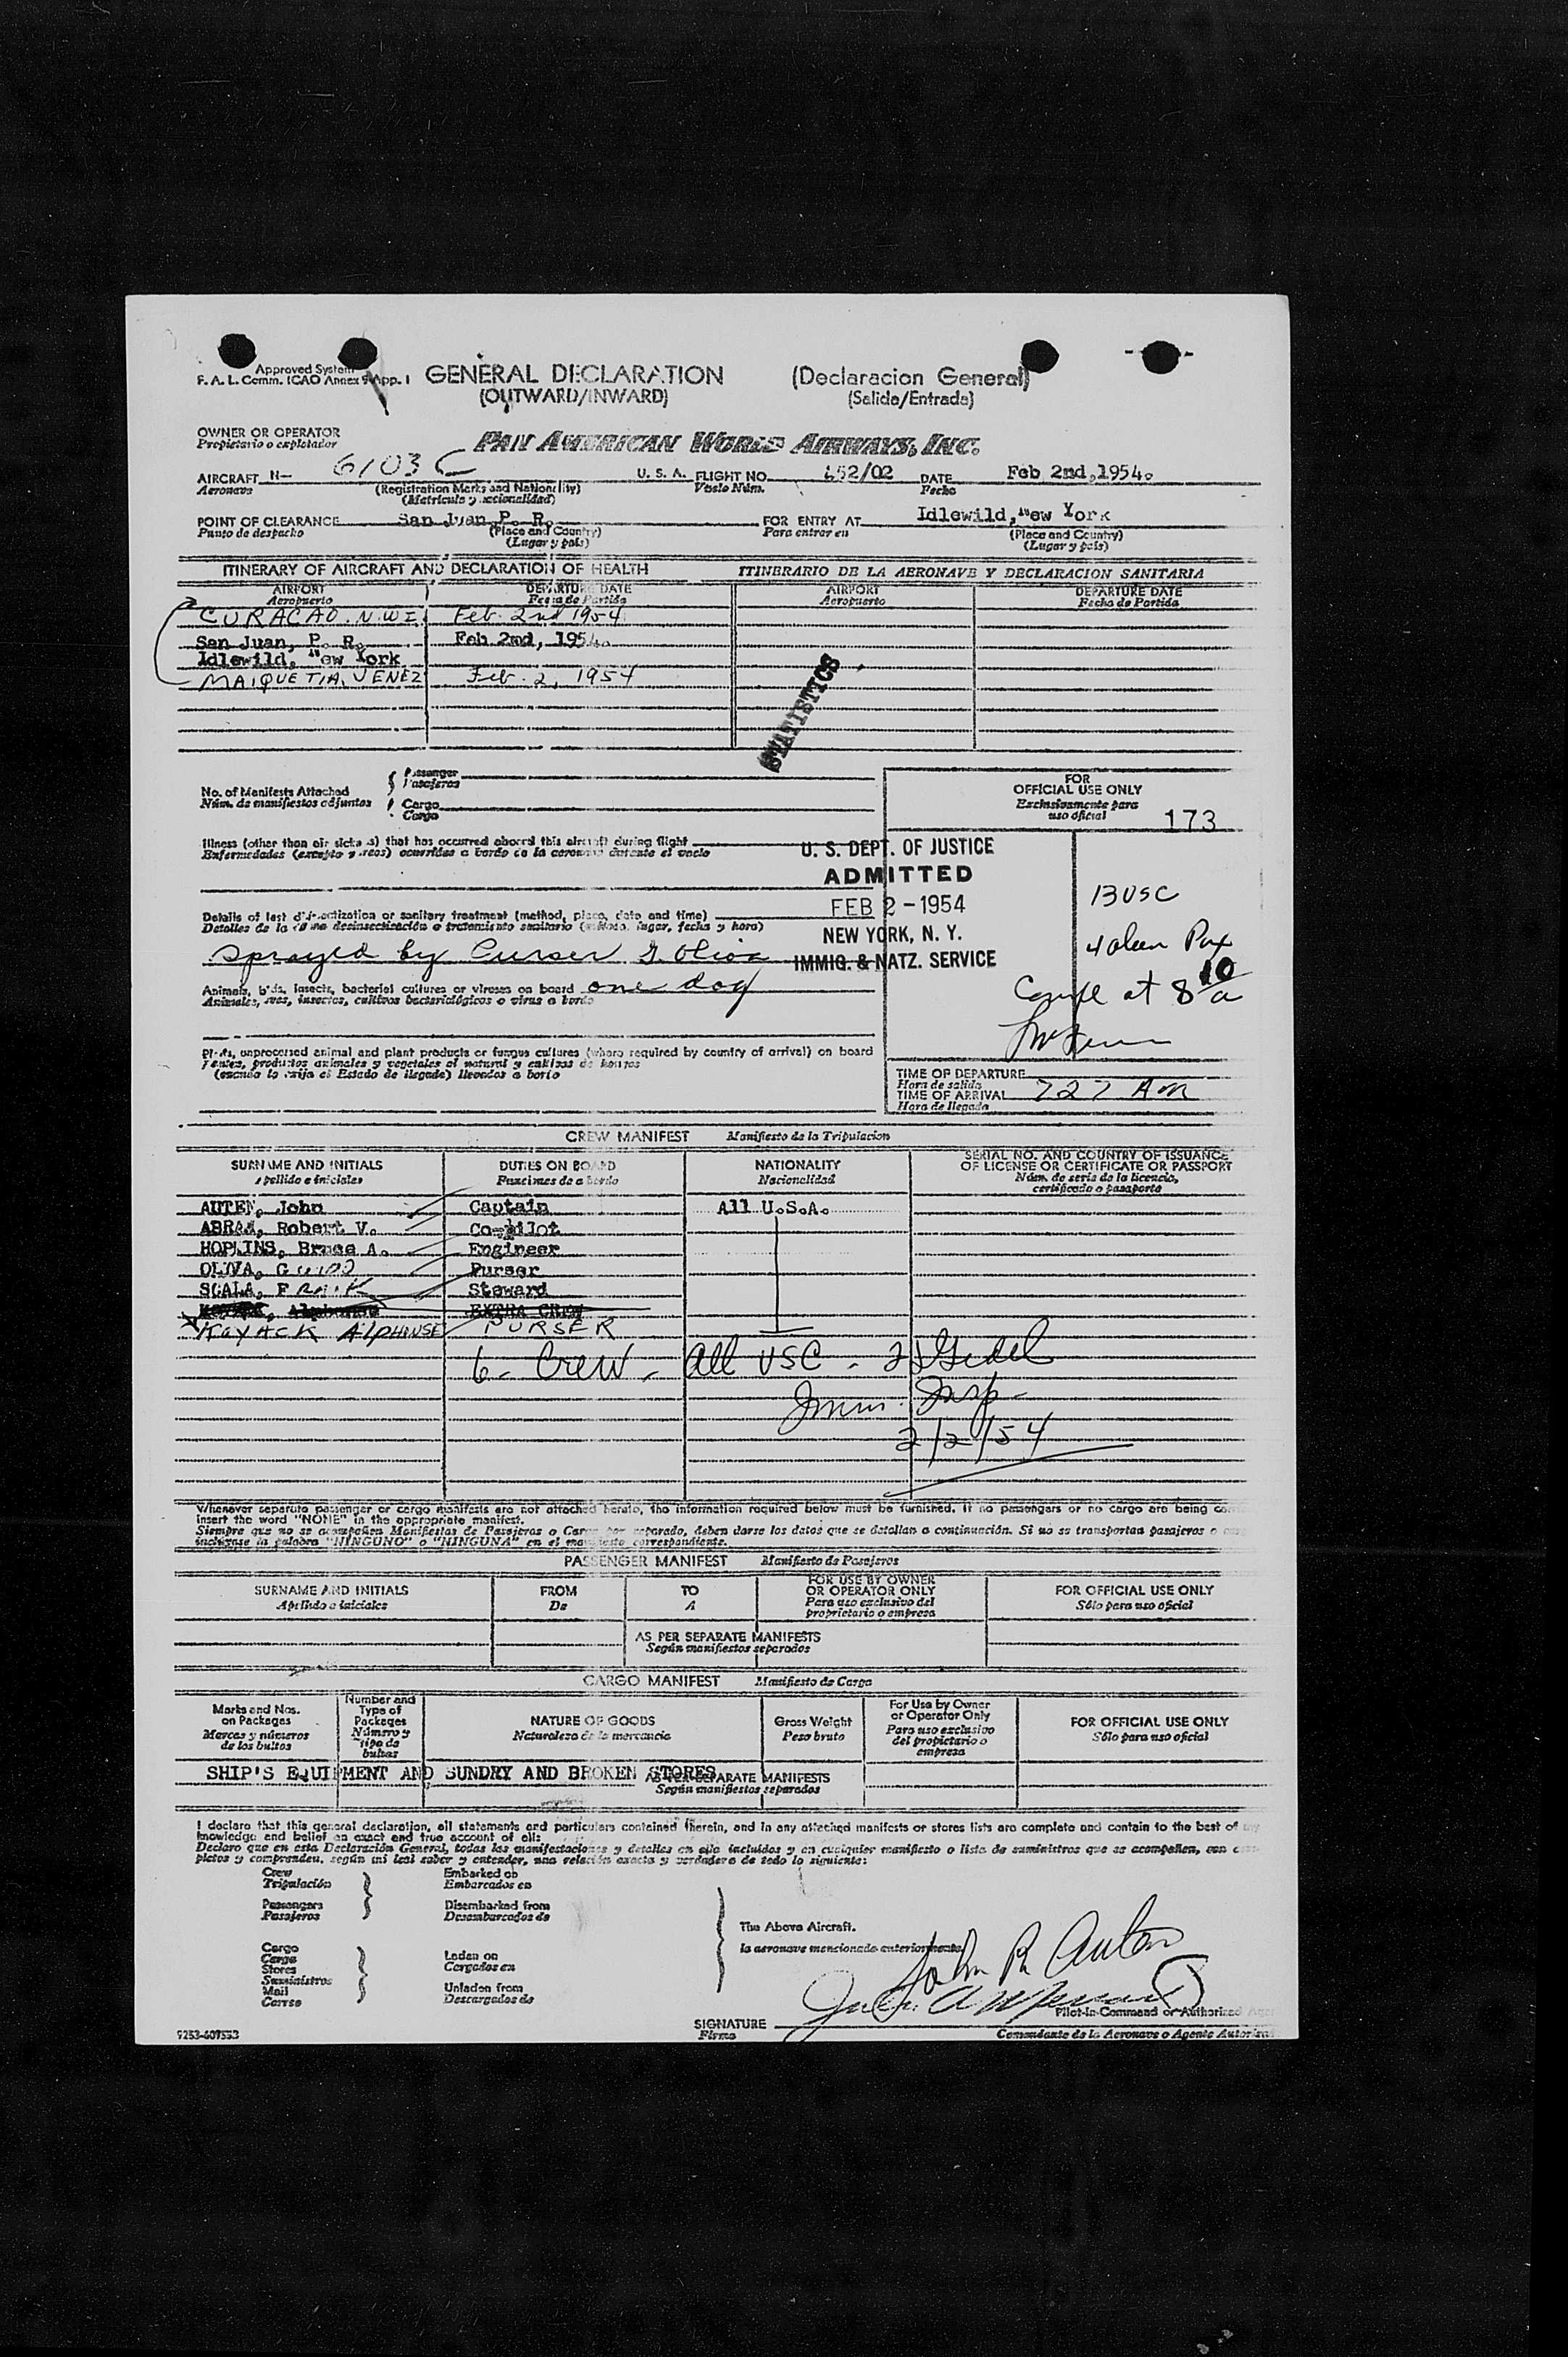 Approved System
F. A. L. Comm. ICAO Annex 9 App. I
GENERAL DECLARATION (Declaracion General)
(OUTWARD/INWARD) (Salida/Entrada)
OWNER OR OPERATOR
Propietario o explotador
PAN AMERICAN WORLD AIRWAYS, INC.
AIRCRAFT N- 6103C U. S. A. FLIGHT NO. 452/02 DATE Feb 2nd, 1954.
Aeronave (Registration Marks and Nationality) Vuelo Núm. Fecha
(Matrícula y nacionalidad)
POINT OF CLEARANCE San Juan P. R. FOR ENTRY AT Idlewild, New York
Punto de despacho (Place and Country) Para entrar en (Place and Country)
(Lugar y país) (Lugar y país)
ITINERARY OF AIRCRAFT AND DECLARATION OF HEALTH ITINERARIO DE LA AERONAVE Y DECLARACION SANITARIA
AIRPORT DEPARTURE DATE AIRPORT DEPARTURE DATE
Aeropuerto Fecha de Partida Aeropuerto Fecha de Partida
CURACAO. N.W.I. Feb. 2nd 1954
San Juan, P. R. Feb 2nd, 1954.
Idlewild, New York
MAIQUETIA, VENEZ Feb. 2, 1954
STATISTICS
No. of Manifests Attached
Núm. de manifiestos adjuntos
Passenger
Pasajeros
Cargo
Cargo
FOR
OFFICIAL USE ONLY
Exclusivamente para
uso oficial 173
Illness (other than air sickness) that has occurred aboard this aircraft during flight
Enfermedades (excepto mareos) ocurridas a bordo de la aeronave durante el vuelo
U. S. DEPT. OF JUSTICE
ADMITTED
FEB 2 - 1954
NEW YORK, N. Y.
IMMIG. & NATZ. SERVICE
13 USC
4 alien Pax
Compl at 8 10 a
Details of last disinsectization or sanitary treatment (method, place, date and time)
Detalles de la última desinsectización o tratamiento sanitario (método, lugar, fecha y hora)
Sprayed by Purser G. Oliva
Animals, birds, insects, bacterial cultures or viruses on board one dog
Animales, aves, insectos, cultivos bacteriológicos o virus a bordo
Plants, unprocessed animal and plant products or fungus cultures (where required by country of arrival) on board
Plantas, productos animales y vegetales al natural y cultivos de hongos
(cuando lo exija el Estado de llegada) llevados a bordo
TIME OF DEPARTURE
Hora de salida
TIME OF ARRIVAL 727 AM
Hora de llegada
CREW MANIFEST Manifiesto de la Tripulacion
SURNAME AND INITIALS DUTIES ON BOARD NATIONALITY SERIAL NO. AND COUNTRY OF ISSUANCE
OF LICENSE OR CERTIFICATE OR PASSPORT
Apellido e iniciales Funciones de a bordo Nacionalidad Núm. de serie de la licencia,
certificado o pasaporte
AUTEN, John Captain All U.S.A.
ABRAM, Robert V. Co-pilot
HOPKINS, Bruce A. Engineer
OLIVA, GUIDO Purser
SCALA, FRANK Steward
Alphonse EXTRA CREW
KOYACK ALPHONSE PURSER
6 - Crew - All USC -
Imm. Insp.
2/2/54
Whenever separate passenger or cargo manifests are not attached hereto, the information required below must be furnished. If no passengers or no cargo are being
insert the word "NONE" in the appropriate manifest.
Siempre que no se acompañen Manifiestos de Pasajeros o Carga por separado, deben darse los datos que se detallan a continuación. Si no se transportan pasajeros o
inclúyase la palabra "NINGUNO" o "NINGUNA" en el manifiesto correspondiente.
PASSENGER MANIFEST Manifiesto de Pasajeros
SURNAME AND INITIALS FROM TO FOR USE BY OWNER
OR OPERATOR ONLY FOR OFFICIAL USE ONLY
Apellido e iniciales De A Para uso exclusivo del
propietario o empresa Sólo para uso oficial
AS PER SEPARATE MANIFESTS
Según manifiestos separados
CARGO MANIFEST Manifiesto de Carga
Marks and Nos.
on Packages
Marcas y números
de los bultos
Number and
Type of
Packages
Número y
tipo de
bultos
NATURE OF GOODS
Naturaleza de la mercancía
Gross Weight
Peso bruto
For Use by Owner
or Operator Only
Para uso exclusivo
del propietario o
empresa
FOR OFFICIAL USE ONLY
Sólo para uso oficial
SHIP'S EQUIPMENT AND SUNDRY AND BROKEN STORES
AS PER SEPARATE MANIFESTS
Según manifiestos separados
I declare that this general declaration, all statements and particulars contained therein, and in any attached manifests or stores lists are complete and contain to the best of my
knowledge and belief an exact and true account of all:
Declaro que en esta Declaración General, todas las manifestaciones y detalles en ella incluidos y en cualquier manifiesto o lista de suministros que se acompañen, son
pletos y comprenden, según mi leal saber y entender, una relación exacta y verdadera de todo lo siguiente:
Crew
Tripulación
Passengers
Pasajeros
Embarked on
Embarcados en
Disembarked from
Desembarcados de
Cargo
Carga
Stores
Suministros
Mail
Correo
Laden on
Cargados en
Unladen from
Descargados de
The Above Aircraft.
la aeronave mencionada anteriormente.
John R Auten
Pilot-in-Command or Authorized
SIGNATURE
Firma
Comandante de la Aeronave o Agente Autoriza
9253-607553